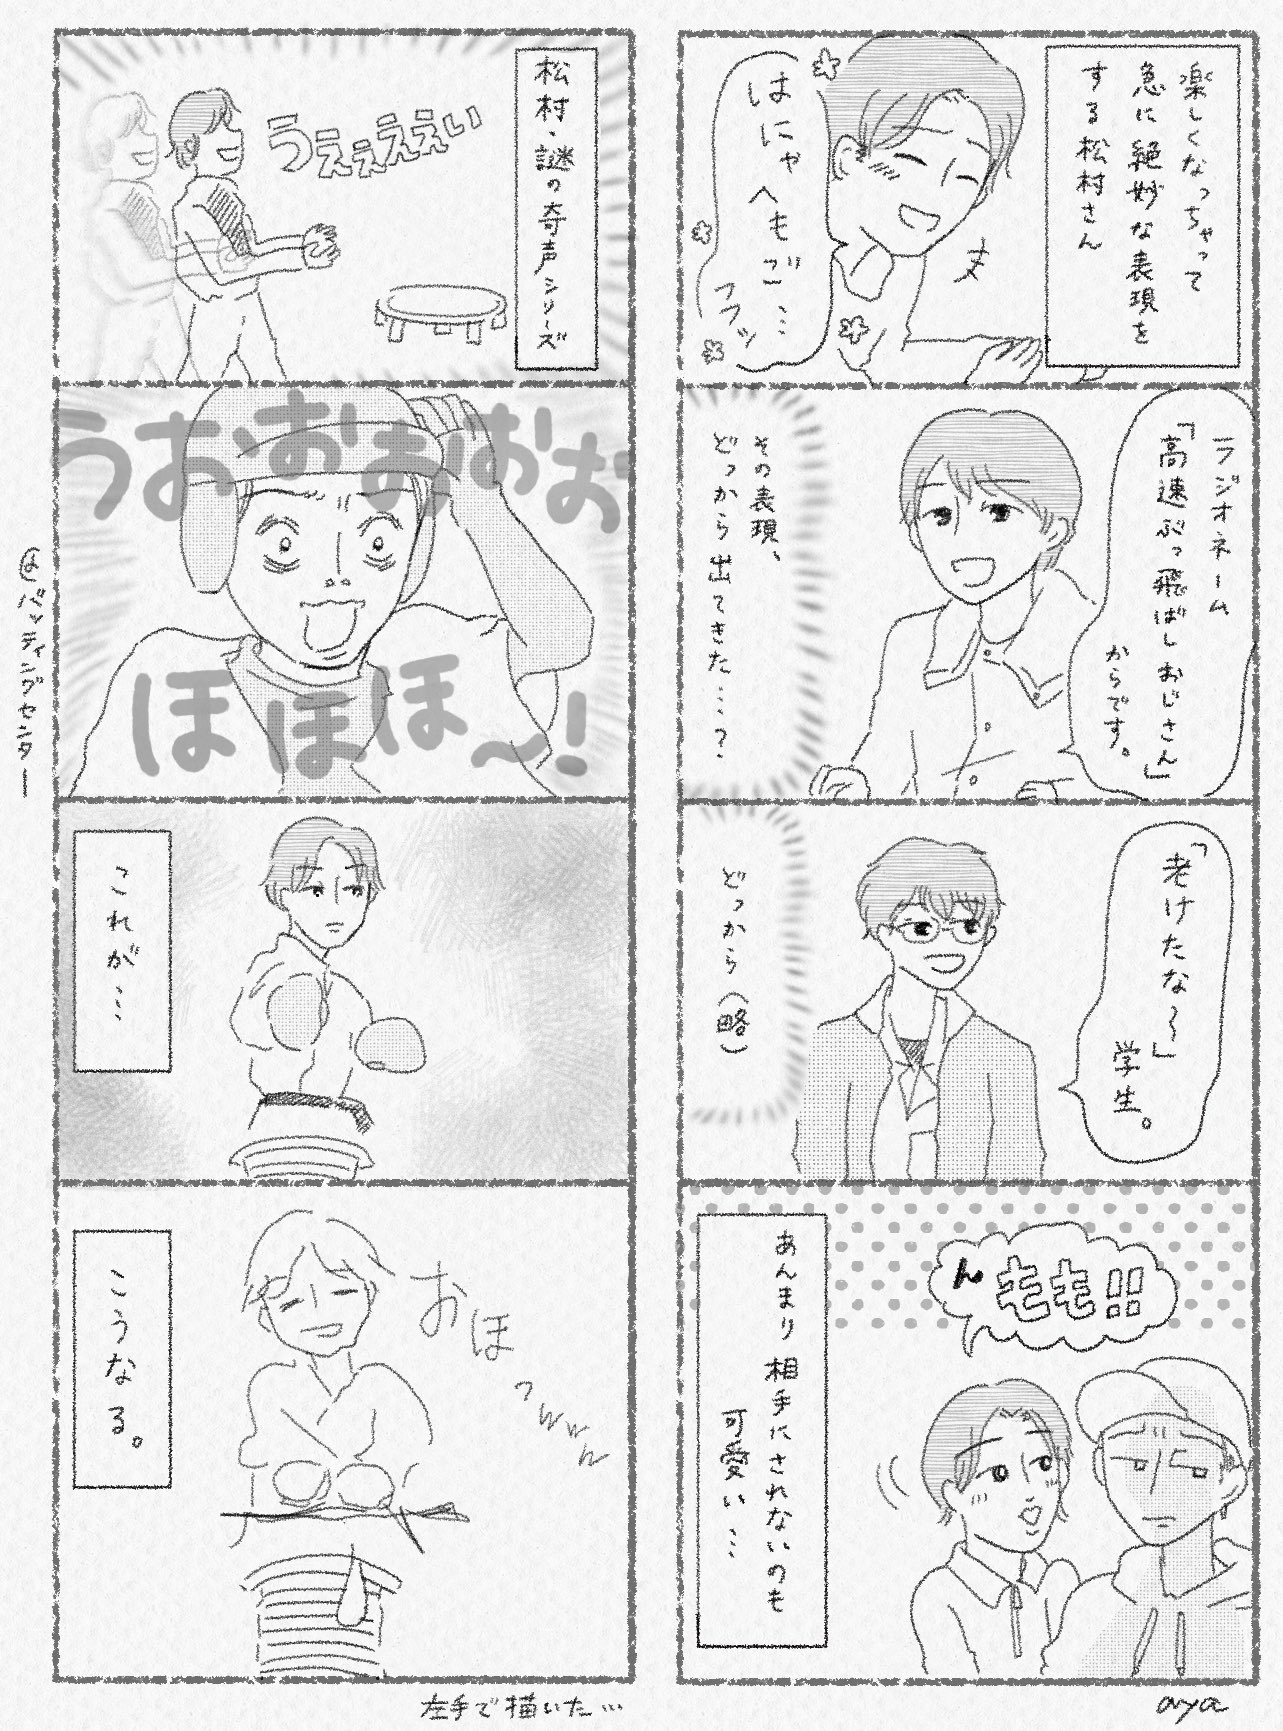 楽しくなっちゃって
急に絶妙な表現を
する松村さん
はにゃ
へもご…
フフッ
ラジオネーム
「高速ぶっ飛ばしおじさん」
からです。
その表現、
どっから出てきた…?
「老けたな〜」
学生。
どっから(略)
んももも!!
あんまり相手にされないのも
可愛い…
aya
松村・謎の奇声シリーズ
うぇぇぇぇい
うおおおおお
ほほほ〜!
@バッティングセンター
これが…
こうなる。
おほ
左手で描いた…